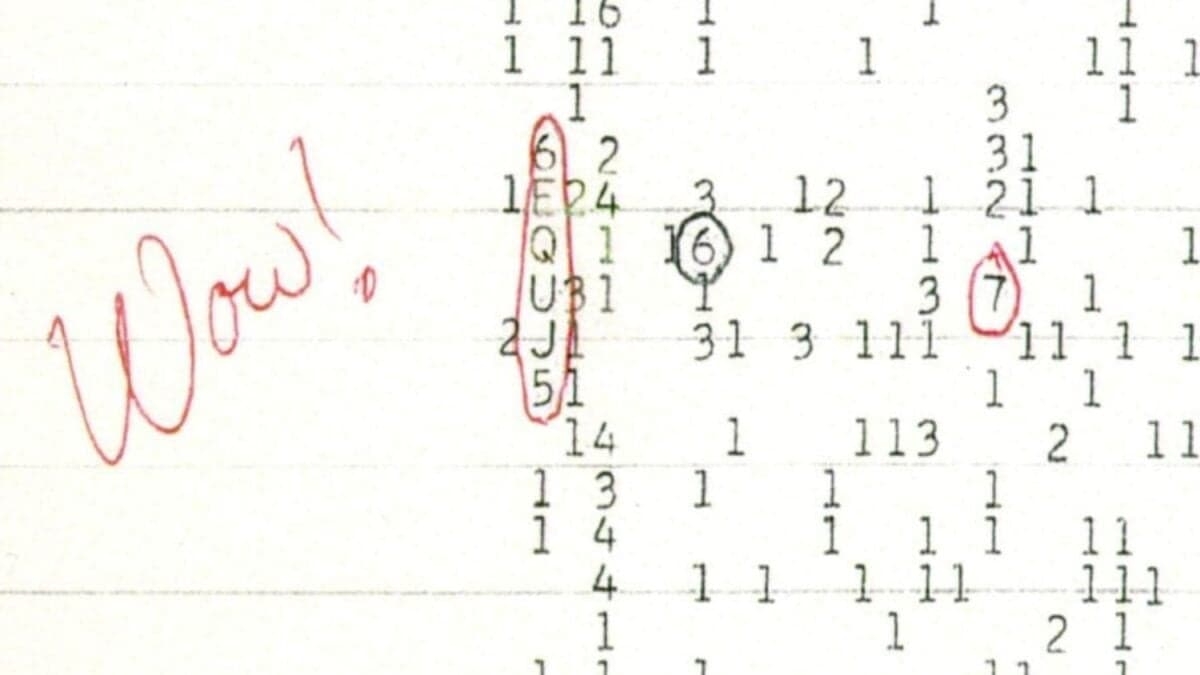 1 16 1 1 1
1 11 1 1 11 1
1 3 1
6 2 31
1E24 3 12 1 21 1
Q 1 16 1 2 1 1 1
U31 1 3 7 1
2J1 31 3 111 11 1 1
51 1 1
14 1 113 2 11
1 3 1 1 1
1 4 1 1 1 11
4 1 1 1 11 111
1 1 2 1
1 1 1 11 1
Wow!